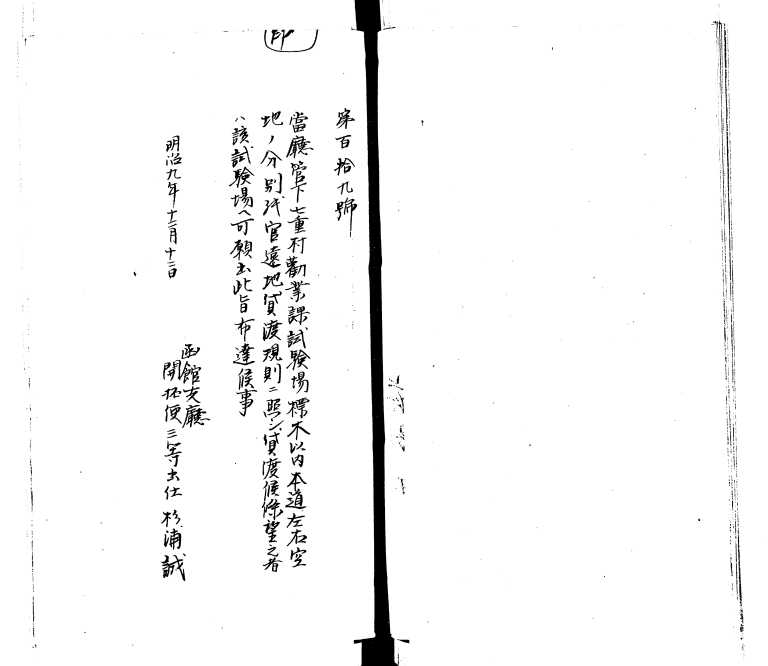 第百拾九號
當廳管下七重村勸業課試験場標木以内本道左右空
地ノ分別紙官遠地貸渡規則ニ照シ貸渡候條望之者
ハ該試験場ヘ可願出此旨布達候事
明治九年十二月十二日
函館支廳
開拓使三等出仕 杉浦誠
印